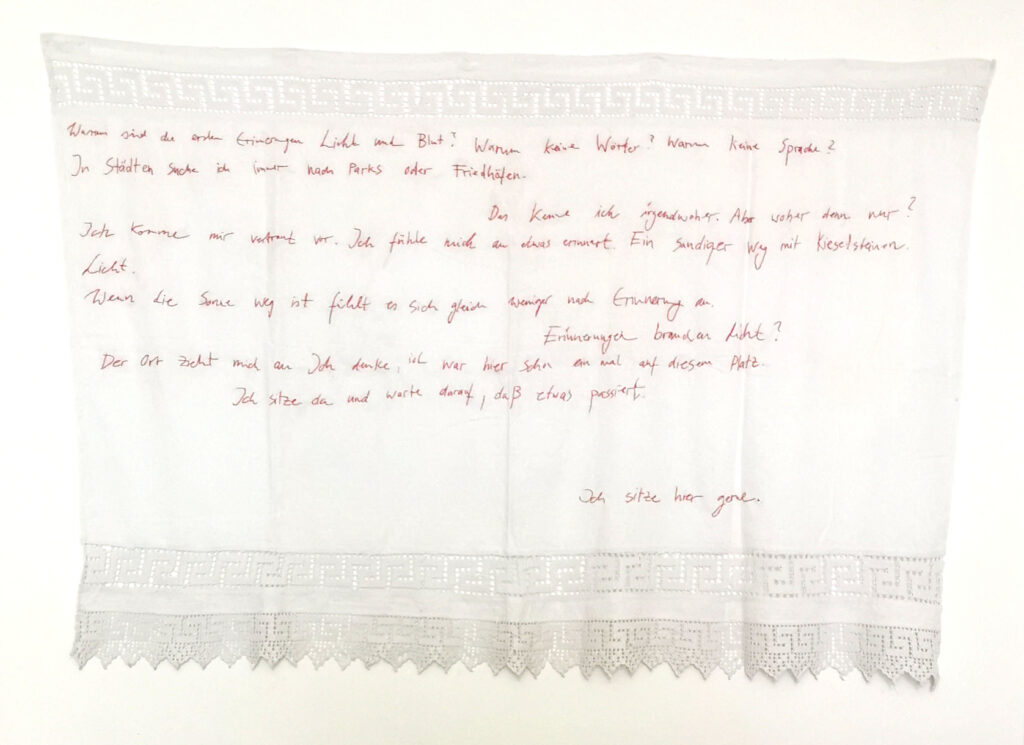 Warum sind die ersten Erinnerungen Licht und Blut? Warum keine Wörter? Warum keine Sprache?
In Städten suche ich immer nach Parks oder Friedhöfen.
Das kenne ich irgendwoher. Aber woher denn nur?
Ich komme mir vertraut vor. Ich fühle mich an etwas erinnert. Ein sandiger Weg mit Kieselsteinen.
Licht.
Wenn die Sonne weg ist fühlt es sich gleich weniger nach Erinnerung an.
Erinnerungen brauchen Licht?
Der Ort zieht mich an. Ich denke, ich war hier schon ein mal auf diesem Platz.
Ich sitze da und warte darauf, daß etwas passiert.
Ich sitze hier gerne.